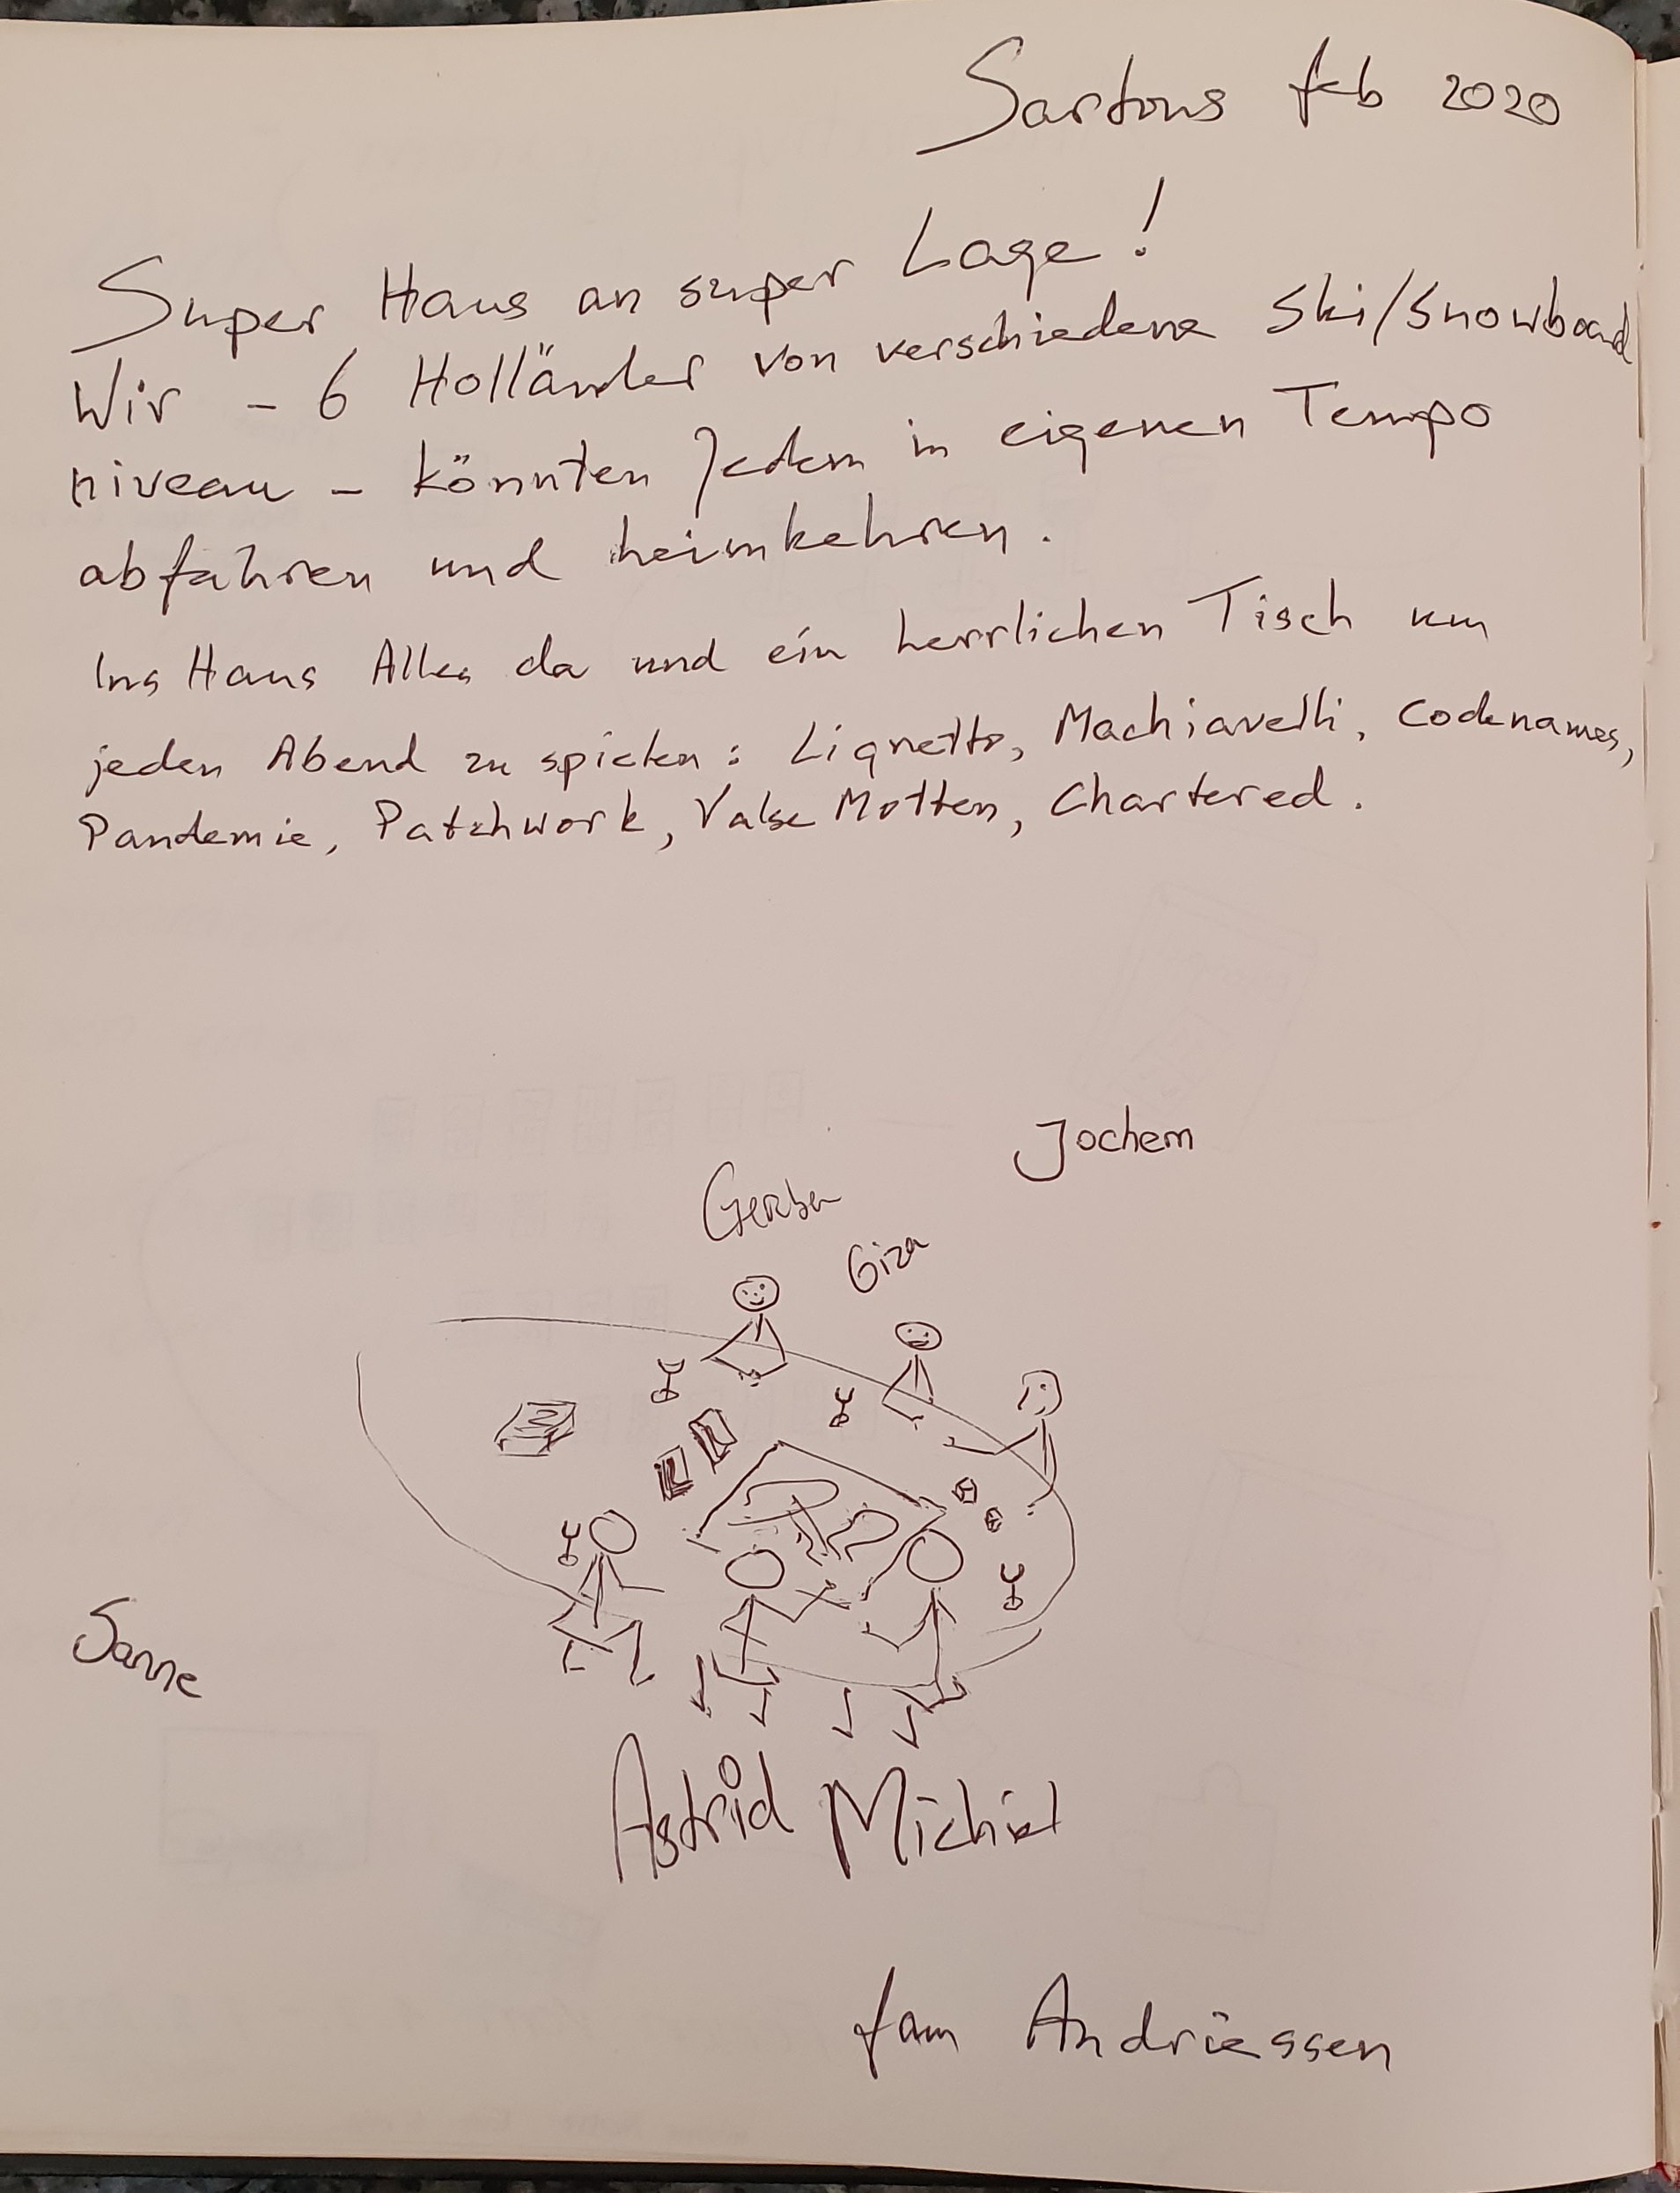 Sartons feb 2020
Super Haus an super Lage!
Wir - 6 Holländer von verschiedene Ski/Snowboard
niveau - könnten Jedem in eigenen Tempo
abfahren und heimkehren.
Ins Haus Alles da und ein herrlichen Tisch um
jeden Abend zu spielen: Liqnetto, Machiavelli, Codenames,
Pandemie, Patchwork, Valse Motten, Chartered.
Jochem
Gerben
Giza
Sanne
Astrid Michiel
fam Andriessen